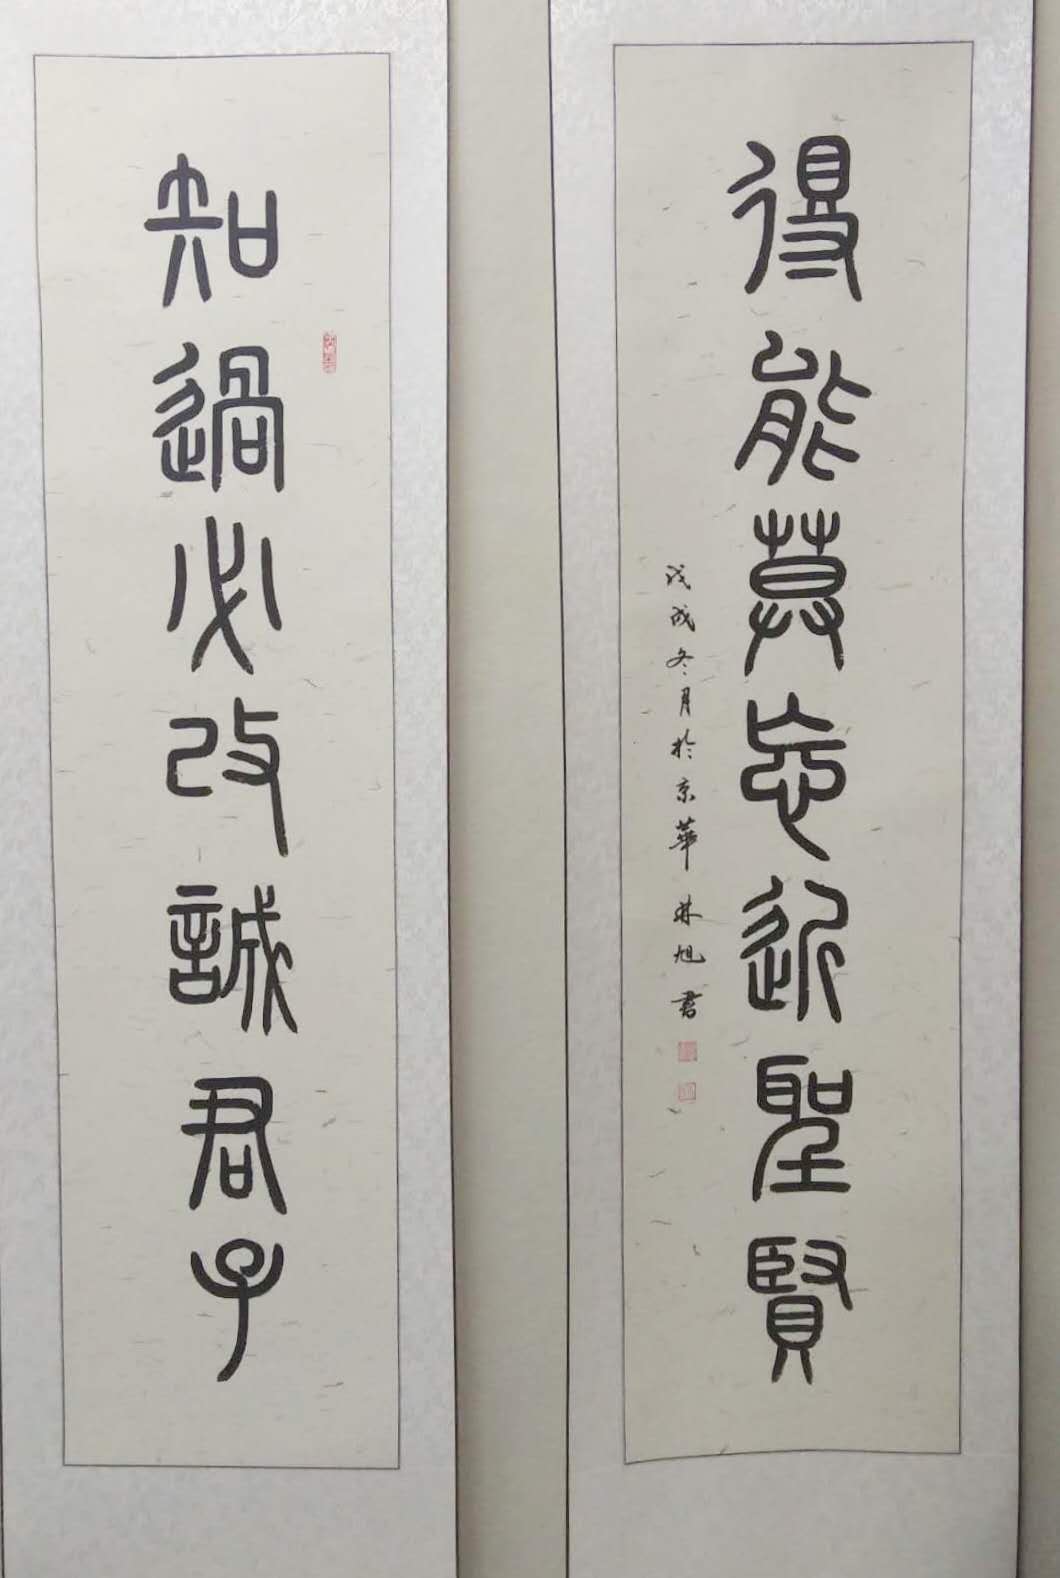 知過必改誠君子
得能莫忘近聖賢
戊戌冬月於京華林旭書